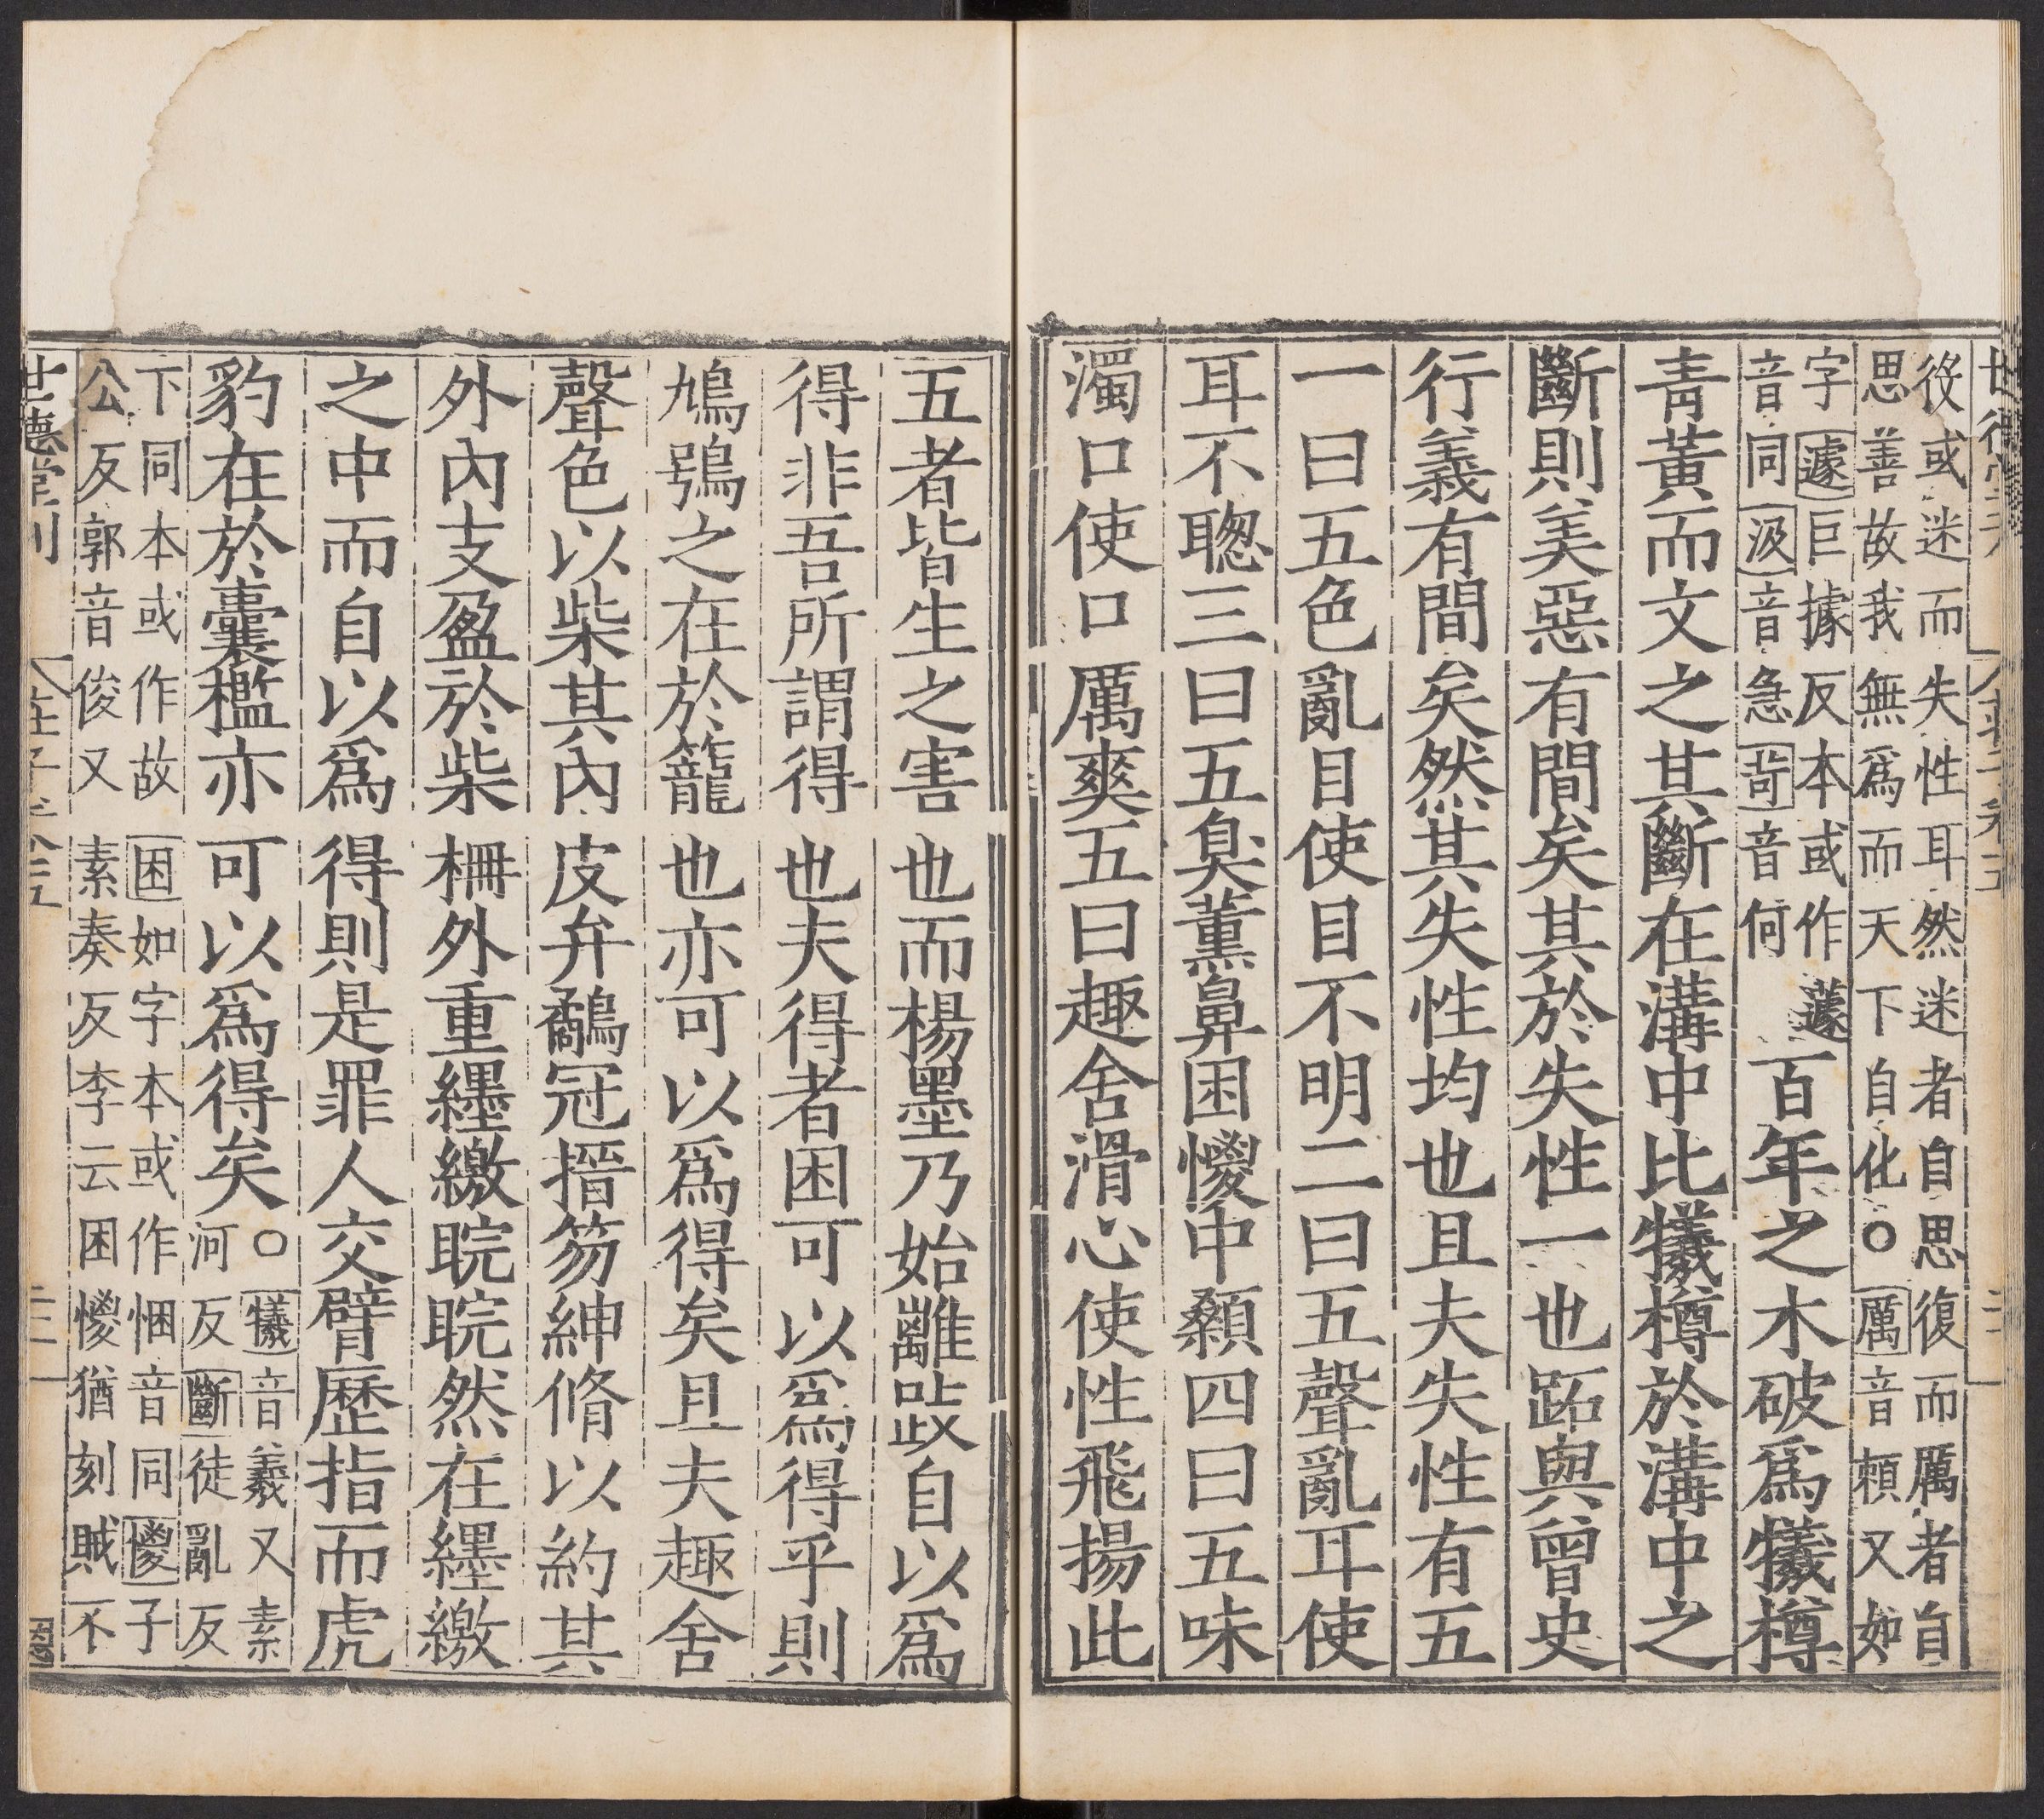 役或迷而失性耳然迷者自思復而厲者自
思善故我無爲而天下自化○厲音頼又如
字遽巨據反本或作蘧
音同汲音急苛音何
百年之木破爲犧樽
青黃而文之其斷在溝中比犧樽於溝中之
斷則美惡有間矣其於失性一也跖與曾史
行義有間矣然其失性均也且夫失性有五
一曰五色亂目使目不明二曰五聲亂耳使
耳不聰三曰五臭薰鼻困惾中顙四曰五味
濁口使口厲爽五曰趣舍滑心使性飛揚此
五者皆生之害也而楊墨乃始離跂自以爲
得非吾所謂得也夫得者困可以爲得乎則
鳩鴞之在於籠也亦可以爲得矣且夫趣舍
聲色以柴其內皮弁鷸冠搢笏紳脩以約其
外內支盈於柴柵外重纆繳睆睆然在纆繳
之中而自以爲得則是罪人交臂歷指而虎
豹在於囊檻亦可以爲得矣
○犧音羲又素
河反斷徒亂反
下同本或作故困如字本或作悃音同惾子
公反郭音俊又素奏反李云困惾猶刻賊不
世德堂刊
莊子卷五